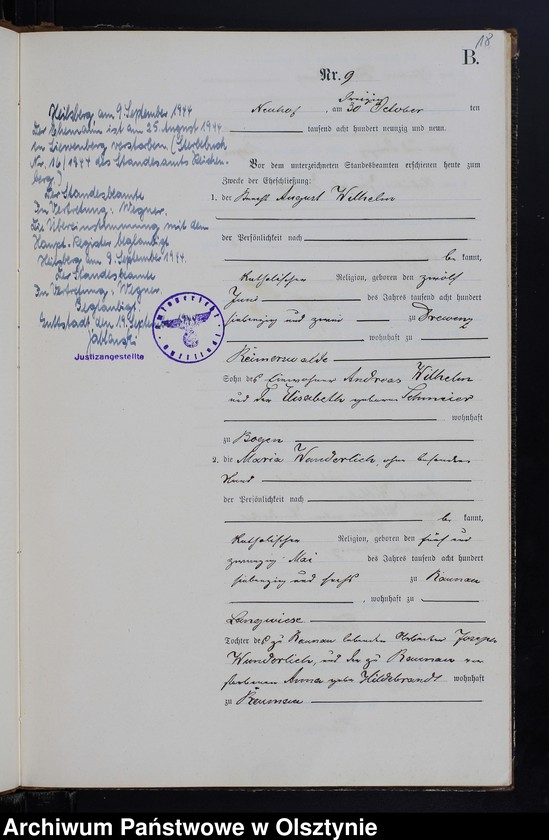 18
B.
Nr. 9
Neuhof, am 30 October ten
tausend acht hundert neunzig und neun.
Vor dem unterzeichneten Standesbeamten erschienen heute zum
Zwecke der Eheschließung:
1. der Knecht August Wilhelm
der Persönlichkeit nach
be kannt,
katholischer Religion, geboren den zwölf
Juni des Jahres tausend acht hundert
siebenzig und zwei zu Drewenz
wohnhaft zu
Reimerswalde
Sohn des Einwohner Andreas Wilhelm
und der Elisabeth geborene Schmeier
wohnhaft
zu Bogen
2. die Maria Wunderlich, ohne besonderen
Stand
der Persönlichkeit nach
be kannt,
katholischer Religion, geboren den fünf und
zwanzig Mai des Jahres tausend acht hundert
siebenzig und sechs zu Raunau
, wohnhaft zu
Langwiese
Tochter des zu Raunau lebenden Joseph
Wunderlich, und der zu Raunau ver
storbenen Anna geb. Hildebrandt wohnhaft
zu Raunau
Heilsberg am 9. September 1944
Der Ehemann ist am 25. August 1944
in Liewenberg verstorben (Sterbebuch
Nr. 16/1944 des Standesamts Reichen-
berg)
Der Standesbeamte
In Vertretung: Wegner.
Die Übereinstimmung mit dem
Haupt-Register beglaubigt
Heilsberg am 9. September 1944.
Der Standesbeamte
In Vertretung: Wegner
Beglaubigt:
Guttstadt, den 14. Sept.
Justizangestellte
Amtsgericht
Archiwum Państwowe w Olsztynie